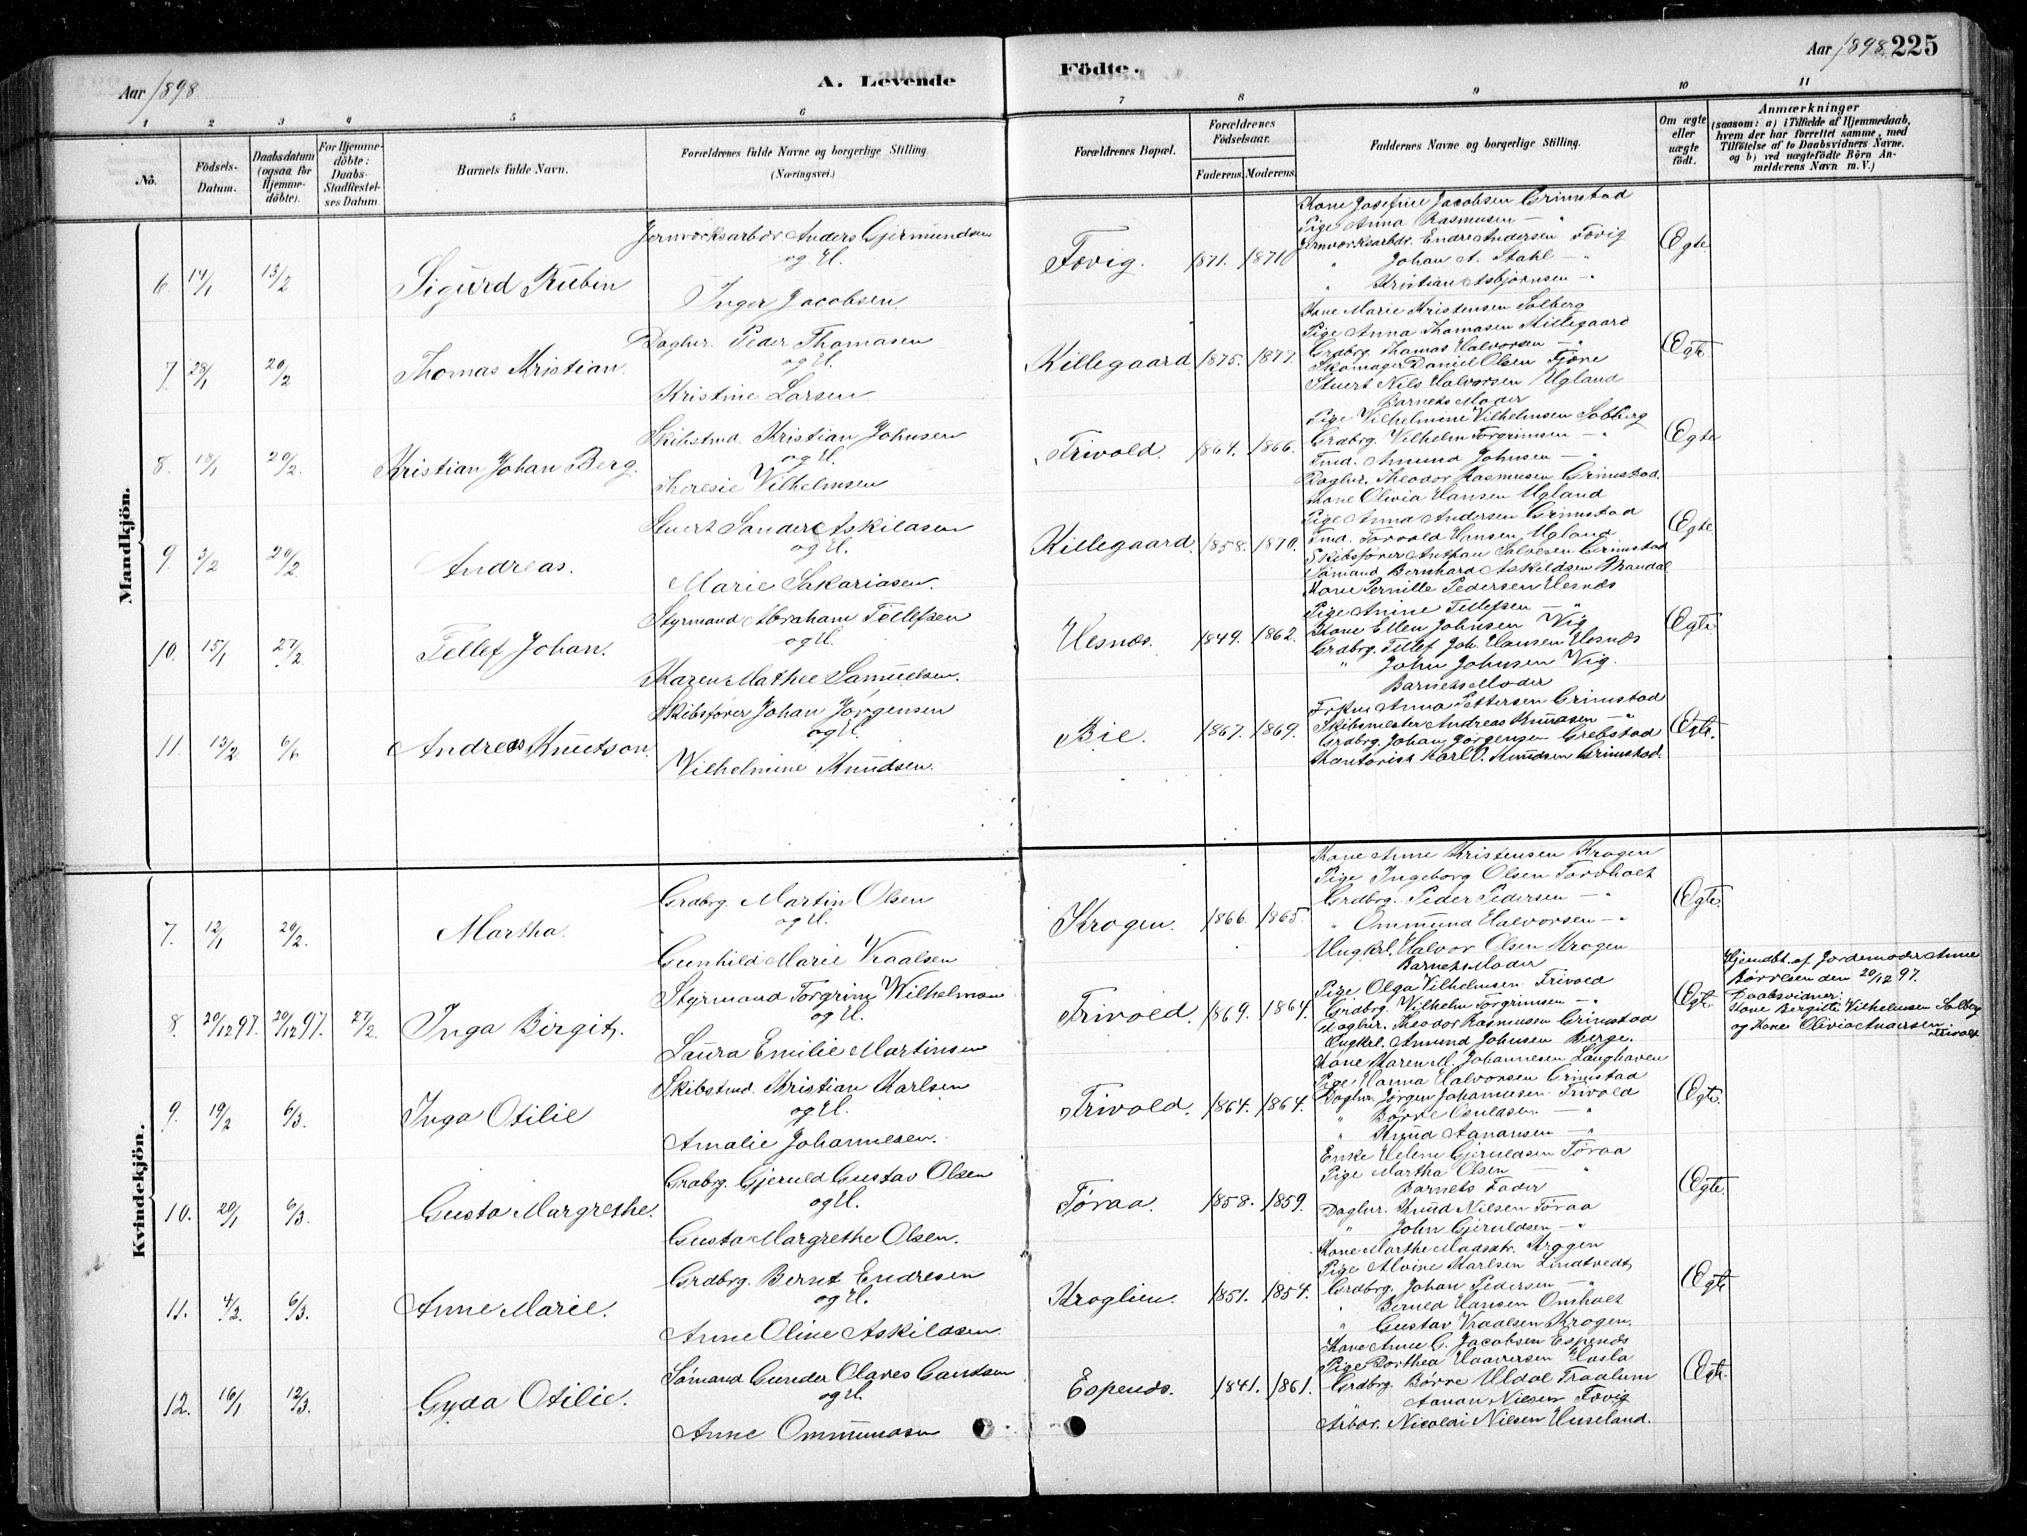 Aar 1898
A. Levende
Födte.
Aar 1898. 225
1 2 3 4 5 6 7 8 9 10 11
No.
Födsels-Datum.
Daabsdatum (ogsaa for Hjemme-döbte).
For Hjemme-döbte: Daabs-Stadfæstel-ses Datum.
Barnets fulde Navn.
Forældrenes fulde Navne og borgerlige Stilling. (Næringsvei.)
Forældrenes Bopæl.
Forældrenes Födselsaar.
Faderens. Moderens.
Faddernes Navne og borgerlige Stilling.
Om ægte eller uægte födt.
Anmærkninger
(saasom: a) i Tilfælde af Hjemmedaab,
hvem der har forrettet samme, med
Tilföielse af to Daabsvidners Navne.
og b) ved uægtefödte Börn An-
melderens Navn m.V.)
Mandkjön.
6. 14/1 13/2 Sigurd Rubin
Jernværksarbdr. Anders Gjermundsen
og H.
Inger Jacobsen.
Fævig. 1871. 1871
Kone Josefine Jacobsen Grimstad
Pige Anna Rasmusen — "
Jernværksarbdr. Endre Andersen Fævig
" Johan A. Stahl — "
" Kristian Asbjørnsen — "
Ægte
7. 28/1 20/2 Thomas Kristian.
Daglnr. Peder Thomasen
og H.
Kristine Larsen
Killegaard 1875. 1877.
Kone Marie Kristensen Solberg
Pige Anna Thomasen Killegaard
Grdbrg. Thomas Halvorsen — "
Skomager Daniel Olsen Fjære
Stuert Nils Halvorsen Ugland
Ægte.
8. 18/1 20/2. Kristian Johan Berg.
Skibstmd. Kristian Johnsen
og H.
Theresie Vilhelmsen
Trivold. 1864. 1866.
Barnets Moder
Pige Vilhelmine Vilhelmsen Solberg
Grdbrg. Vilhelm Torgrimsen — "
Tmd. Amund Johnsen — "
Daglnr. Theodor Rasmusen Grimstad.
Ægte
9. 3/2 20/2. Andreas.
Stuert Sander Askildsen
og H.
Marie Sakariasen.
Killegaard. 1858. 1870.
Kone Olivia Hansen Ugland
Pige Anna Andersen Grimstad
Tmd. Torvald Hansen Ugland.
Skibsfører Anthan Salvesen Grimstad
Sømand Bernhard Askildsen Mandal
Ægte
10. 15/1 27/2. Tellef Johan.
Styrmand Abraham Tellefsen
og H.
Karen Mathee Samuelsen.
Hesnæs. 1849. 1862.
Kone Pernille Pedersen Hesnæs
Pige Anine Tellefsen — "
Kone Ellen Johnsen Vig
Grdbrg. Tellef Joh. Hansen Hesnæs
" John Johnsen Vig.
Ægte.
11. 13/2 6/6 Andreas Knutson.
Skibsfører Johan Jørgensen
og H.
Wilhelmine Knudsen.
Bie. 1867. 1869.
Barnets Moder
Frkn. Anna Pettersen Grimstad
Skibsmester Andreas Knudsen — "
Grdbrg. Johan Jørgensen Grefstad
Kontorist Karl O. Knudsen Grimstad.
Ægte.
Kvindekjön.
7. 12/1 20/2. Martha.
Grdbrg. Martin Olsen
og H.
Gunhild Marie Vraalsen
Krogen. 1866. 1865.
Kone Anne Kristensen Krogen
Pige Ingeborg Olsen Torvholt
Grdbrg. Peder Pedersen — "
" Ommund Halvorsen — "
Ungkrl. Halvor Olsen Krogen
Ægte.
8. 20/12 97. 20/12 97. 27/2 Inga Birgit.
Styrmand Torgrim Wilhelmsen
og H.
Laura Emilie Martinsen
Trivold. 1869. 1864.
Barnets Moder
Pige Olga Vilhelmsen Trivold
Grdbrg. Wilhelm Torgrimsen — "
Daglnr. Theodor Rasmusen Grimstad
Ungkrl. Amund Johnsen Berge.
Ægte.
Hjemdbt. af Jordemoder Anne
Børresen den 20/12 97.
Daabsvidner:
Kone Bergitte Vilhelmsen Solberg
og Kone Olivia Andersen
Trivold
9. 19/2 6/3. Inga Otilie
Skibstmd. Kristian Karlsen
og H.
Amalie Johannesen.
Trivold. 1864. 1864.
Kone Karen M. Johannesen Langhaven
Pige Hanna Halvorsen Grimstad
Daglnr. Jørgen Johannesen Trivold
" Børre Osuldsen — "
" Knud Aanansen — "
Ægte.
10. 20/1 6/3. Gusta Margrethe.
Grdbrg. Gjeruld Gustav Olsen
og H.
Gusta Margrethe Olsen.
Tøraa. 1858. 1859.
Enke Helene Gjeruldsen Tøraa
Pige Martha Olsen — "
Barnets Fader
Daglnr. Knud Nilsen Tøraa
" John Gjeruldsen — "
Ægte.
11. 4/2. 6/3. Anne Marie.
Grdbrg. Bernt Endresen
og H.
Anne Oline Askildsen
Kroglien. 1851. 1854.
Kone Marthe Madsdtr. Krogen
Pige Alvine Karlsen Lindtvedt
Grdbrg. Johan Pedersen — "
" Berned Hansen Omholt
" Gustav Vraalsen Krogen.
Ægte
12. 16/1 12/3. Gyda Otilie.
Sømand Gunder Olaves
og H.
Anne Ommundsen
Espenæs. 1841. 1861.
Kone Anne G. Jacobsen Espenæs
Pige Dorthea Haaversen Hasla
Grdbrg. Børre Uldal Fraalum
" Aanan Nilsen Fævig
Arbdr. Nicolai Nilsen Huseland.
Ægte.